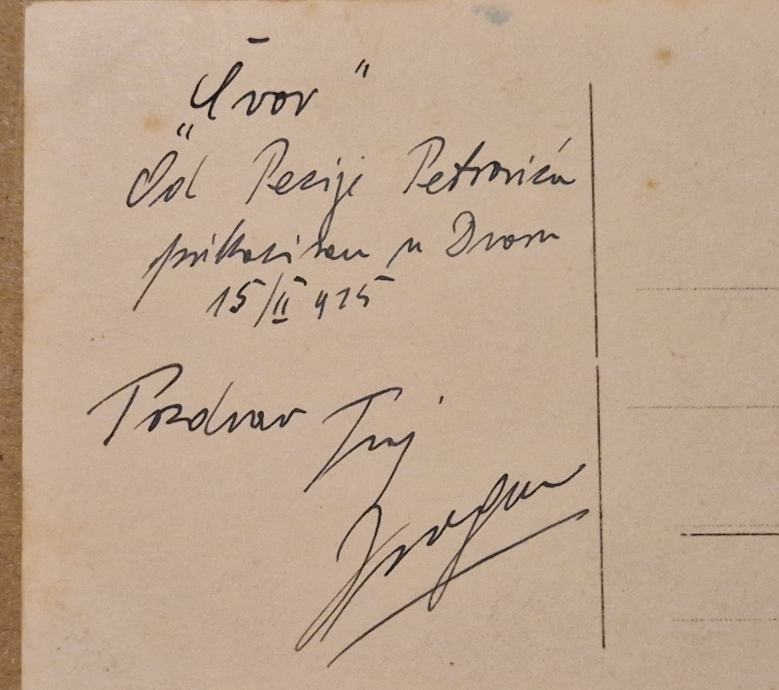 "Čvor"
Od Pecije Petrovića
prikazivan u Dvoru
15/II 925
Pozdrav Tvoj
Dragan